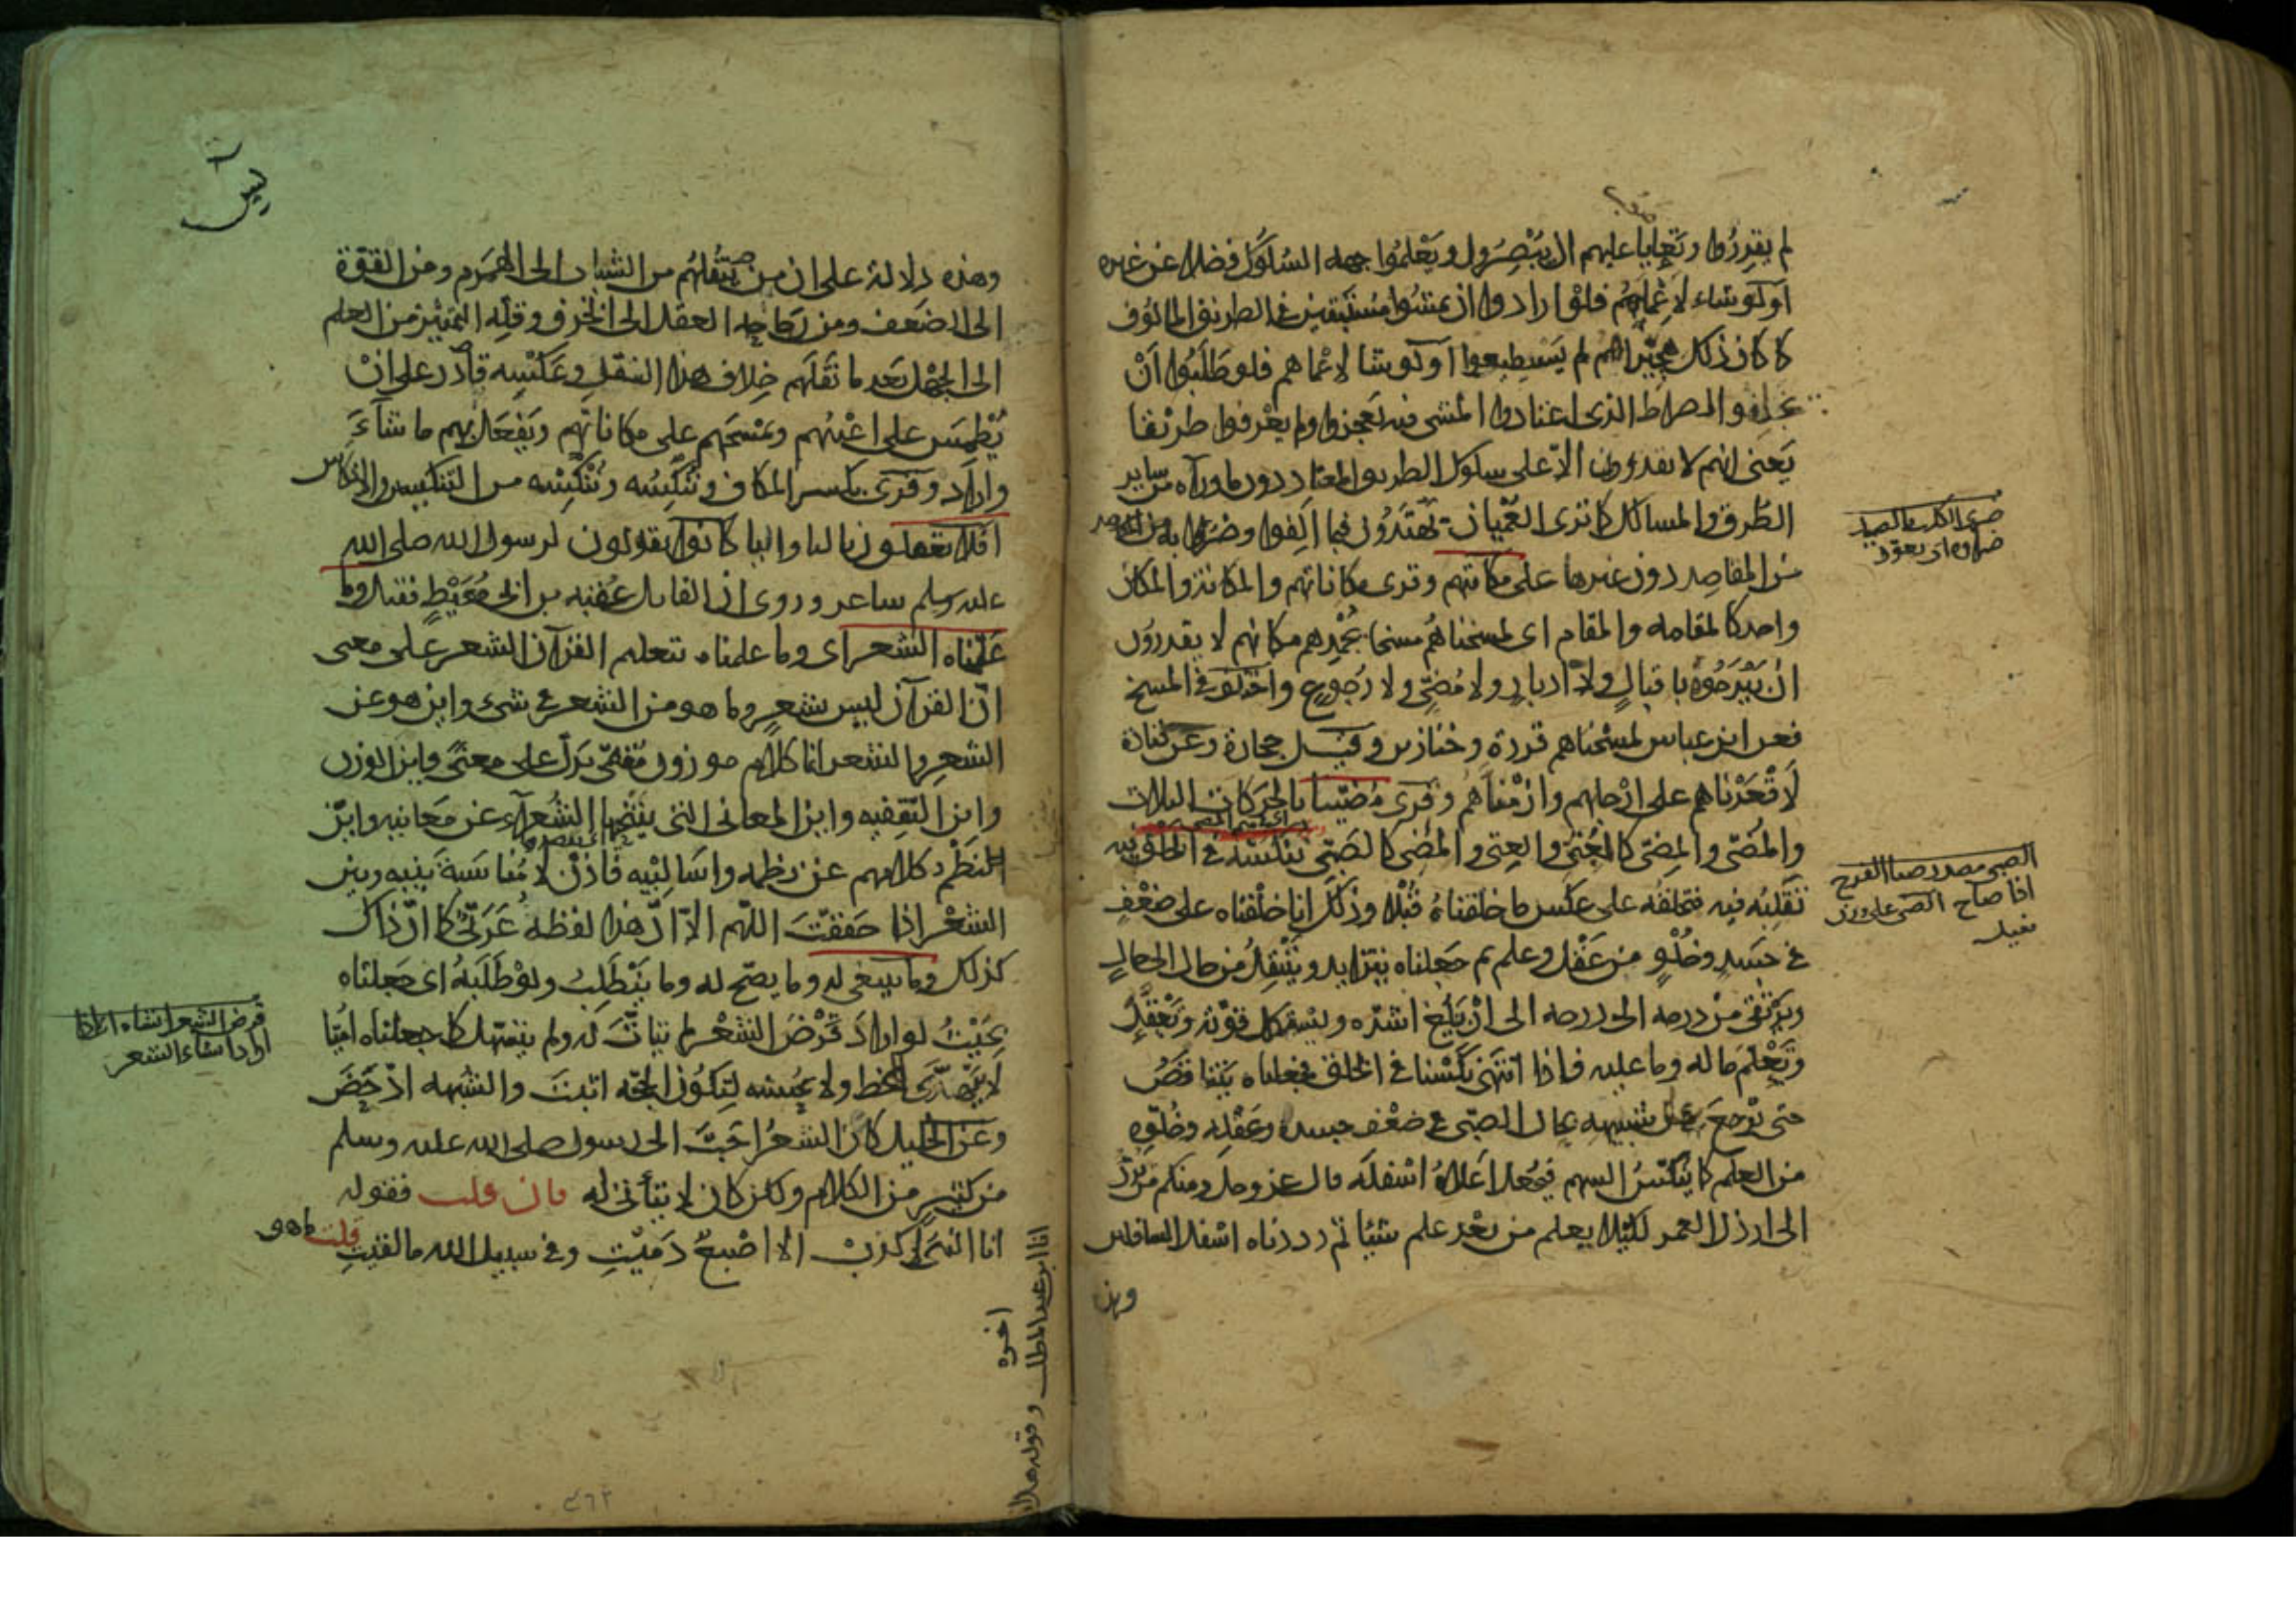 لم يقدروا وتعايا عليهم ان يبصروا ويعلموا جهه السلوك فضلا عن غيره
او لو شاء لاعماهم فلو ارادوا ان يمشوا مستبقين في الطريق المالوف
كما كان ذلك هجيراهم لم يستطيعوا او لو شا لاعماهم فلو طلبوا ان
يخلفوا الصراط الذي اعتادوا المشي فيه لعجزوا ولم يعرفوا طريقا
يعنى انهم لا يقدرون الا على سلوك الطريق المعتاد دون ما وراه من ساير
الطرق والمسالك كما ترى العميان يهتدون فيما الفوا وضروا به
من المقاصد دون غيرها على مكانتهم وقرى مكاناتهم والمكانة والمكان
واحد كالمقامه والمقام اى لمسخناهم مسخا يجمدهم مكانهم لا يقدرون
ان يبرحوه باقبال ولا ادبار ولا مضى ولا رجوع واختلف في المسخ
فعن ابن عباس لمسخناهم قردة وخنازير وقيل حجارة وعن قتادة
لاقعدناهم على ارجلهم وازمناهم وقرى مضيا بالحركات الثلاث
والمضى والمضى كالعتى والعتى والمضى كالصبى ننكسه في الخلق
نقلبه فيه فنخلقه على عكس ما خلقناه قبلا وذلك انا خلقناه على ضعف
في جسد وخلو من عقل وعلم ثم جعلناه يتزايد وينتقل من حال الى حال
ويرتقى من درجه الى درجه الى ان يبلغ اشده ويستكمل قوته ويعقل
ويعلم ما له وما عليه فاذا انتهى نكسنا في الخلق فجعلناه يتناقص
حتى يرجع في حال شبيهه بحال الصبى في ضعف جسده وعقله وخلوه
من العلم كما ينكس السهم فيجعل اعلاه اسفله قال عز وجل ومنكم من يرد
الى ارذل العمر لكيلا يعلم من بعد علم شيئا ثم رددناه اسفل السافلين
وهذه
ضرى الكلب بالصيد
ضراوه اى تعود
الصبى مصدر صبا الفرخ
اذا صاح الصى على وزن
فعيل
يس
وهذه دلالة على ان من ينقلهم من الشباب الى الهرم ومن القوة
الى الضعف ومن رجاحه العقل الى الخرف وقله التمييز من العلم
الى الجهل بعد ما نقلهم خلاف هذا النقل وعكسه قادر على ان
يطمس على اعينهم ويمسخهم على مكاناتهم ويفعل بهم ما شاء
واراد وقرى بكسر الكاف وننكسه وننكسه من التنكيس والانكاس
افلا تعقلون باليا والتا كانوا يقولون لرسول الله صلى الله
عليه وسلم شاعر وروى ان القايل عقبه بن ابى معيط فقيل وما
علمناه الشعر اى وما علمناه بتعليم القرآن الشعر على معنى
ان القرآن ليس بشعر وما هو من الشعر في شىء واين هو عن
الشعر والشعر انما كلام موزون مقفى يدل على معنى فاين الوزن
واين التقفيه واين المعانى التى ينتحيها الشعراء عن معانيه واين
نظم كلامهم عن نظمه واساليبه فاذن لا مناسبة بينه وبين
الشعر اذا حققت اللهم الا ان هذا لفظه عربى كما ان ذاك
كذلك وما ينبغى له وما يصح له وما يتطلب ولو طلبه اى جعلناه
بحيث لو اراد قرض الشعر لم يتات له ولم يتسهل كما جعلناه اميا
لا يتهدى للخط ولا يحسنه لتكون الحجه اثبت والشبهه ادحض
وعن الخليل كان الشعر احب الى رسول صلى الله عليه وسلم
من كثير من الكلام ولكن كان لا يتأتى له فان قلت فقوله
انا النبى لا كذب الا اصبع دميت وفي سبيل الله ما لقيت قلت ما هو
قرض الشعر انشاه
انا ابن عبد المطلب وقوله هل ان
اخره